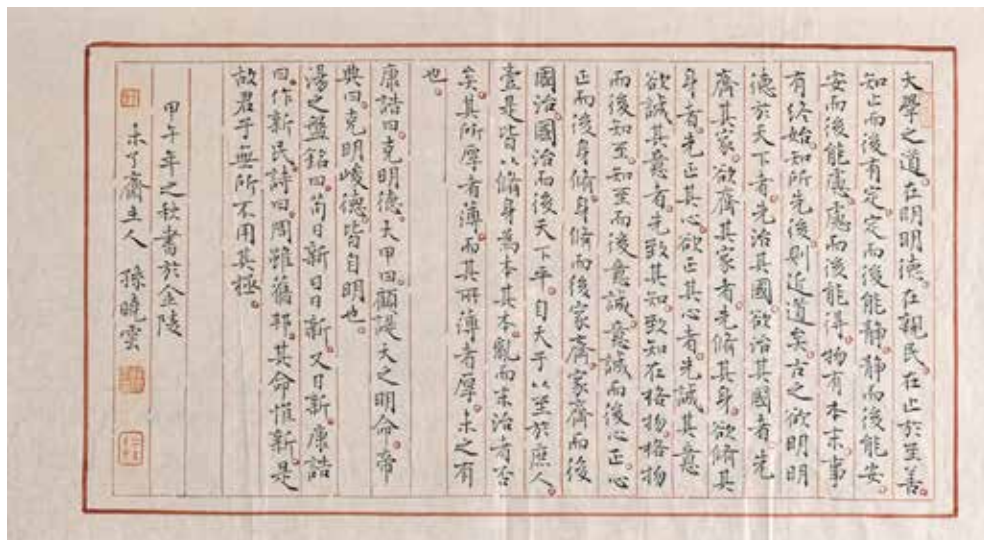 大學之道。在明明德。在親民。在止於至善。
知止而後有定。定而後能靜。靜而後能安。
安而後能慮。慮而後能得。物有本末。事
有終始。知所先後。則近道矣。古之欲明明
德於天下者。先治其國。欲治其國者。先
齊其家。欲齊其家者。先脩其身。欲脩其
身者。先正其心。欲正其心者。先誠其意。
欲誠其意者。先致其知。致知在格物。格物
而後知至。知至而後意誠。意誠而後心正。心
正而後身脩。身脩而後家齊。家齊而後
國治。國治而後天下平。自天子以至於庶人。
壹是皆以脩身為本。其本亂而末治者否
矣。其所厚者薄。而其所薄者厚。未之有
也。
康誥曰。克明德。大甲曰。顧諟天之明命。帝
典曰。克明峻德。皆自明也。
湯之盤銘曰。苟日新。日日新。又日新。康誥
曰。作新民。詩曰。周雖舊邦。其命惟新。是
故君子無所不用其極。
甲午年之秋書於金陵
未了齋主人 孫曉雲